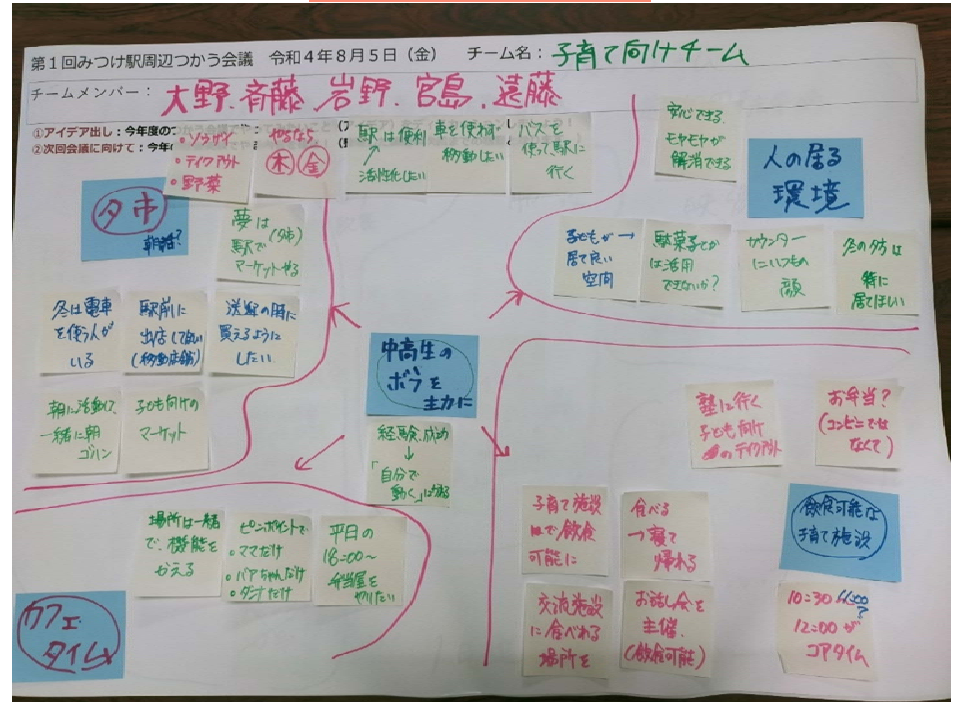 第1回みつけ駅周辺つかう会議 令和4年8月5日(金) チーム名: 子育て向けチーム
チームメンバー: 大野、斉藤、岩野、宮島、遠藤
①アイデア出し:今年度の
②次回会議に向けて:今年
・ソウザイ
・テイクアウト
・野菜
やるなら、
木 金
駅は便利
活性化したい
車を使わず
移動したい
バスを
使って駅に
行く
安心できる。
モヤモヤが
解消できる
人の居る
環境
夕市
朝活?
夢は(夕市)
駅で
マーケットやる
子どもが→
居て良い
空間
駄菓子でか
は活用
できないか?
カウンター
にいつもの
顔
冬の夕方は
特に
居てほしい
冬は電車
を使う人が
いる
駅前に
出店してほしい
(移動店舗)
送迎の時に
買えるように
したい
中高生の
ボラを
主力に
朝に活動して
一緒に朝
ゴハン
子ども向けの
マーケット
経験、成功
↓
「自分で
動く」に
塾に行く
子ども向け
のテイクアウト
お弁当?
(コンビニでは
なくて)
場所は一緒
で、機能を
かえる
ピンポイントで
・ママだけ
・バアちゃんだけ
・ダンナだけ
平日の
18:00〜
弁当屋を
やりたい
子育て施設
で飲食
可能に
食べる
→寝て
帰れる
飲食可能な
子育て施設
カフェ
タイム
交流施設
に食べれる
場所を
お話し会を
主催。
(飲食可能)
10:30
12:00が
コアタイム